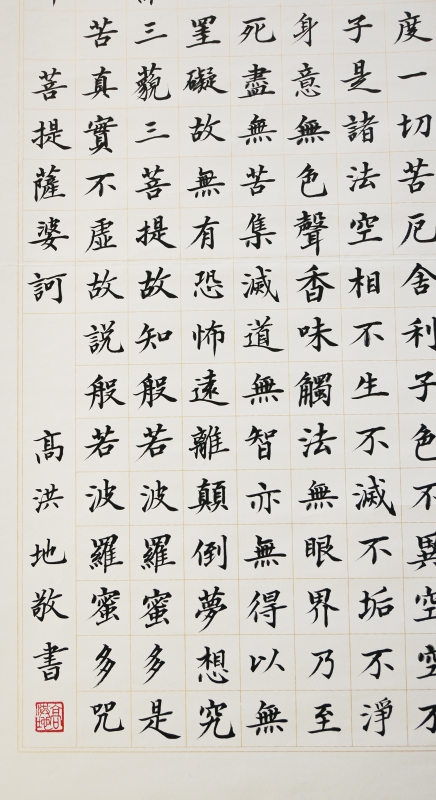 度一切苦厄舍利子色不異空空不
子是諸法空相不生不滅不垢不淨
身意無色聲香味觸法無眼界乃至
死盡無苦集滅道無智亦無得以無
罣礙故無有恐怖遠離顛倒夢想究
三藐三菩提故知般若波羅蜜多是
苦真實不虛故說般若波羅蜜多咒
菩提薩婆訶 高洪地敬書